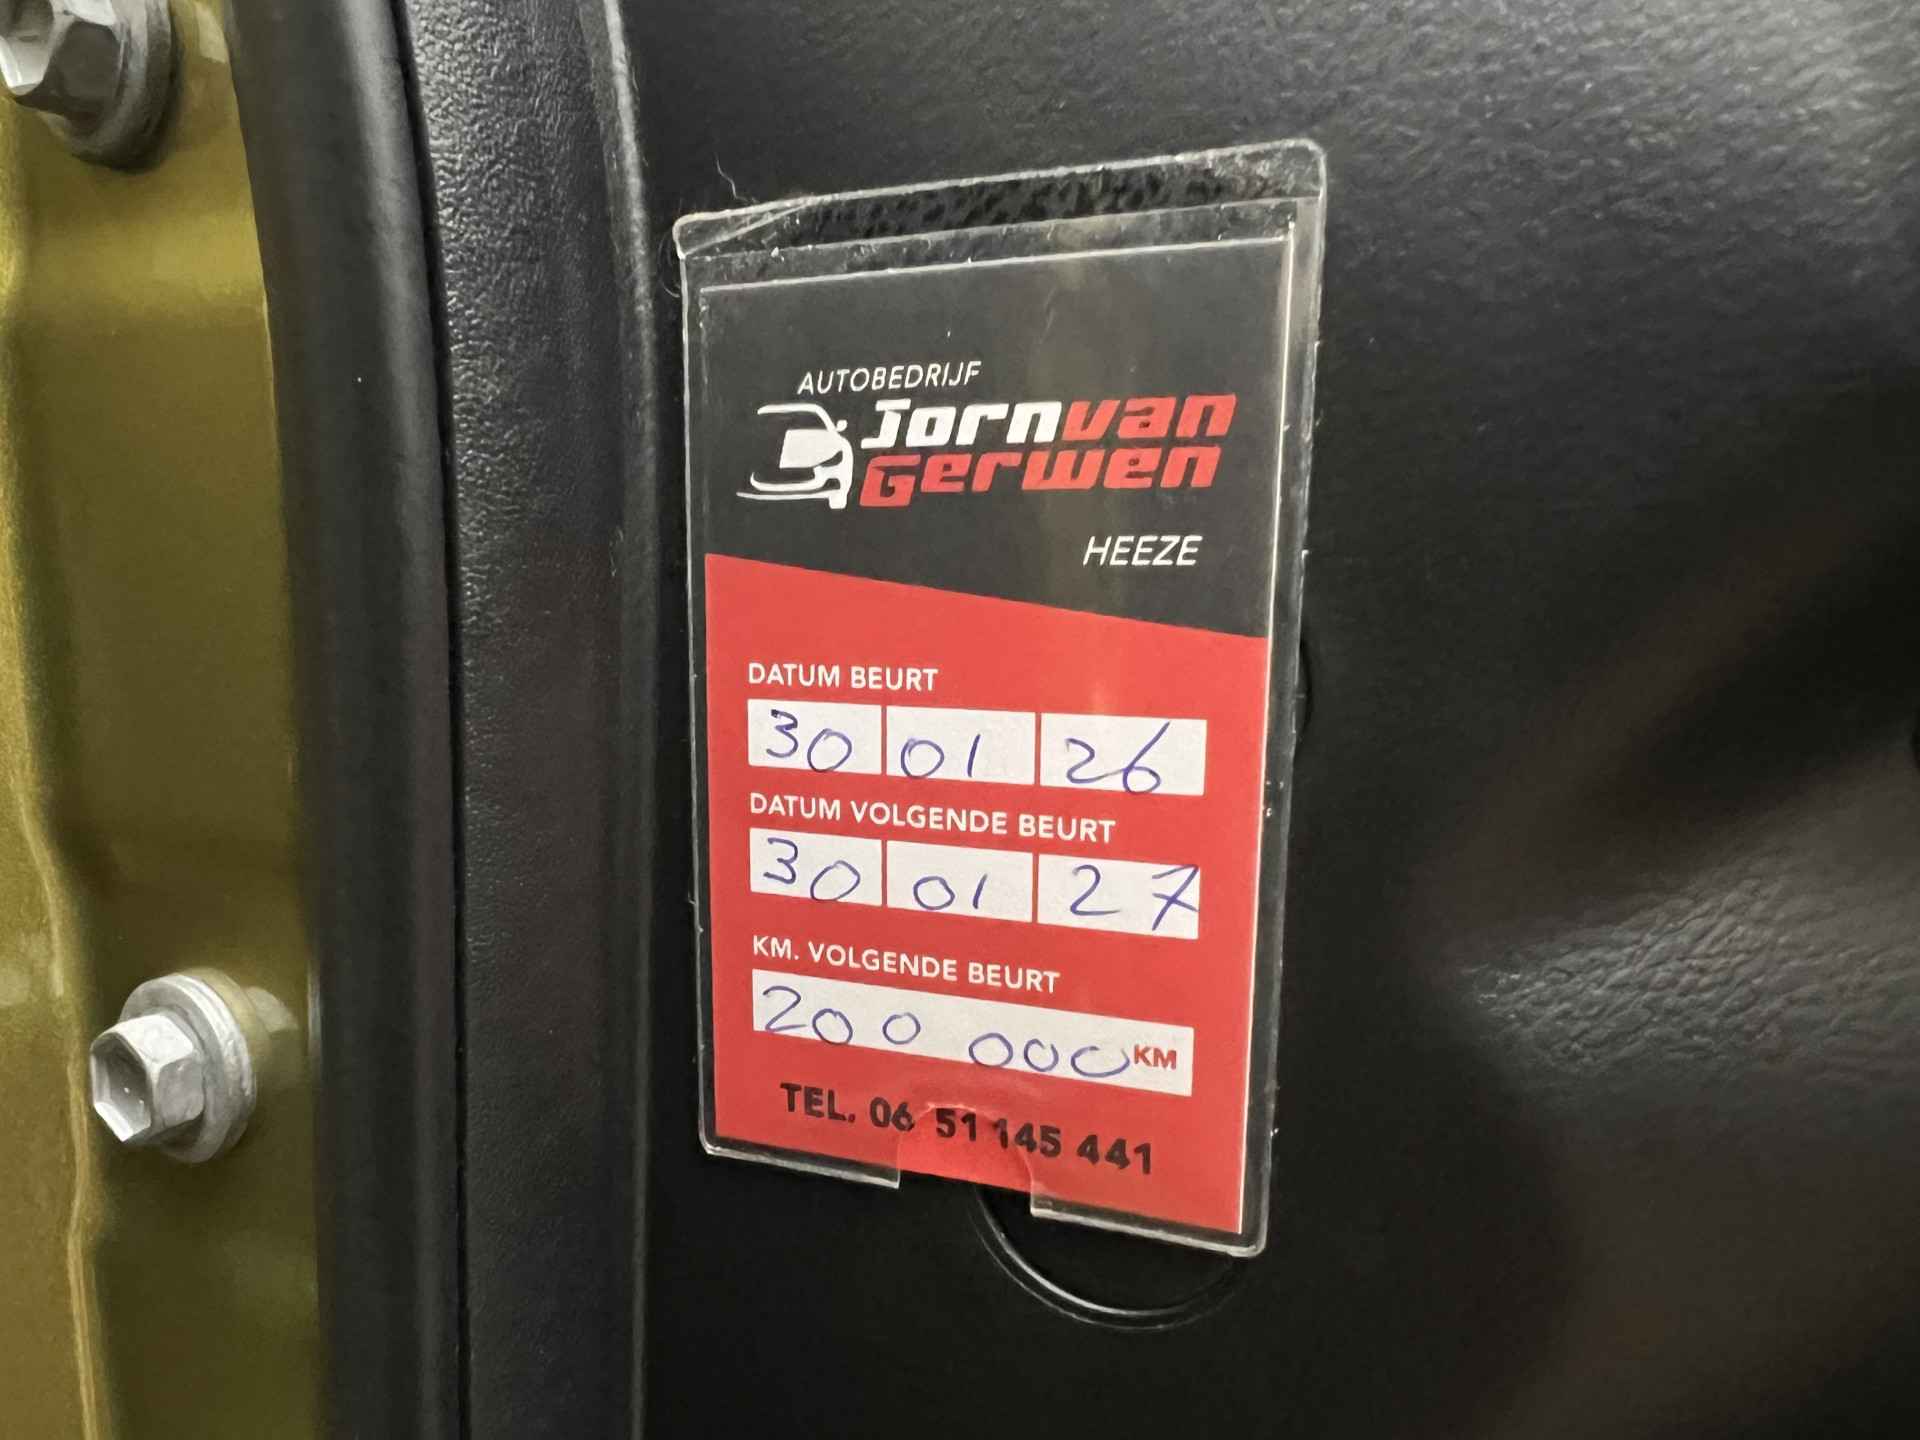 AUTOBEDRIJF
Jornvan
Gerwen
HEEZE
DATUM BEURT
30 01 26
DATUM VOLGENDE BEURT
30 01 27
KM. VOLGENDE BEURT
200 000 KM
TEL. 06 51 145 441